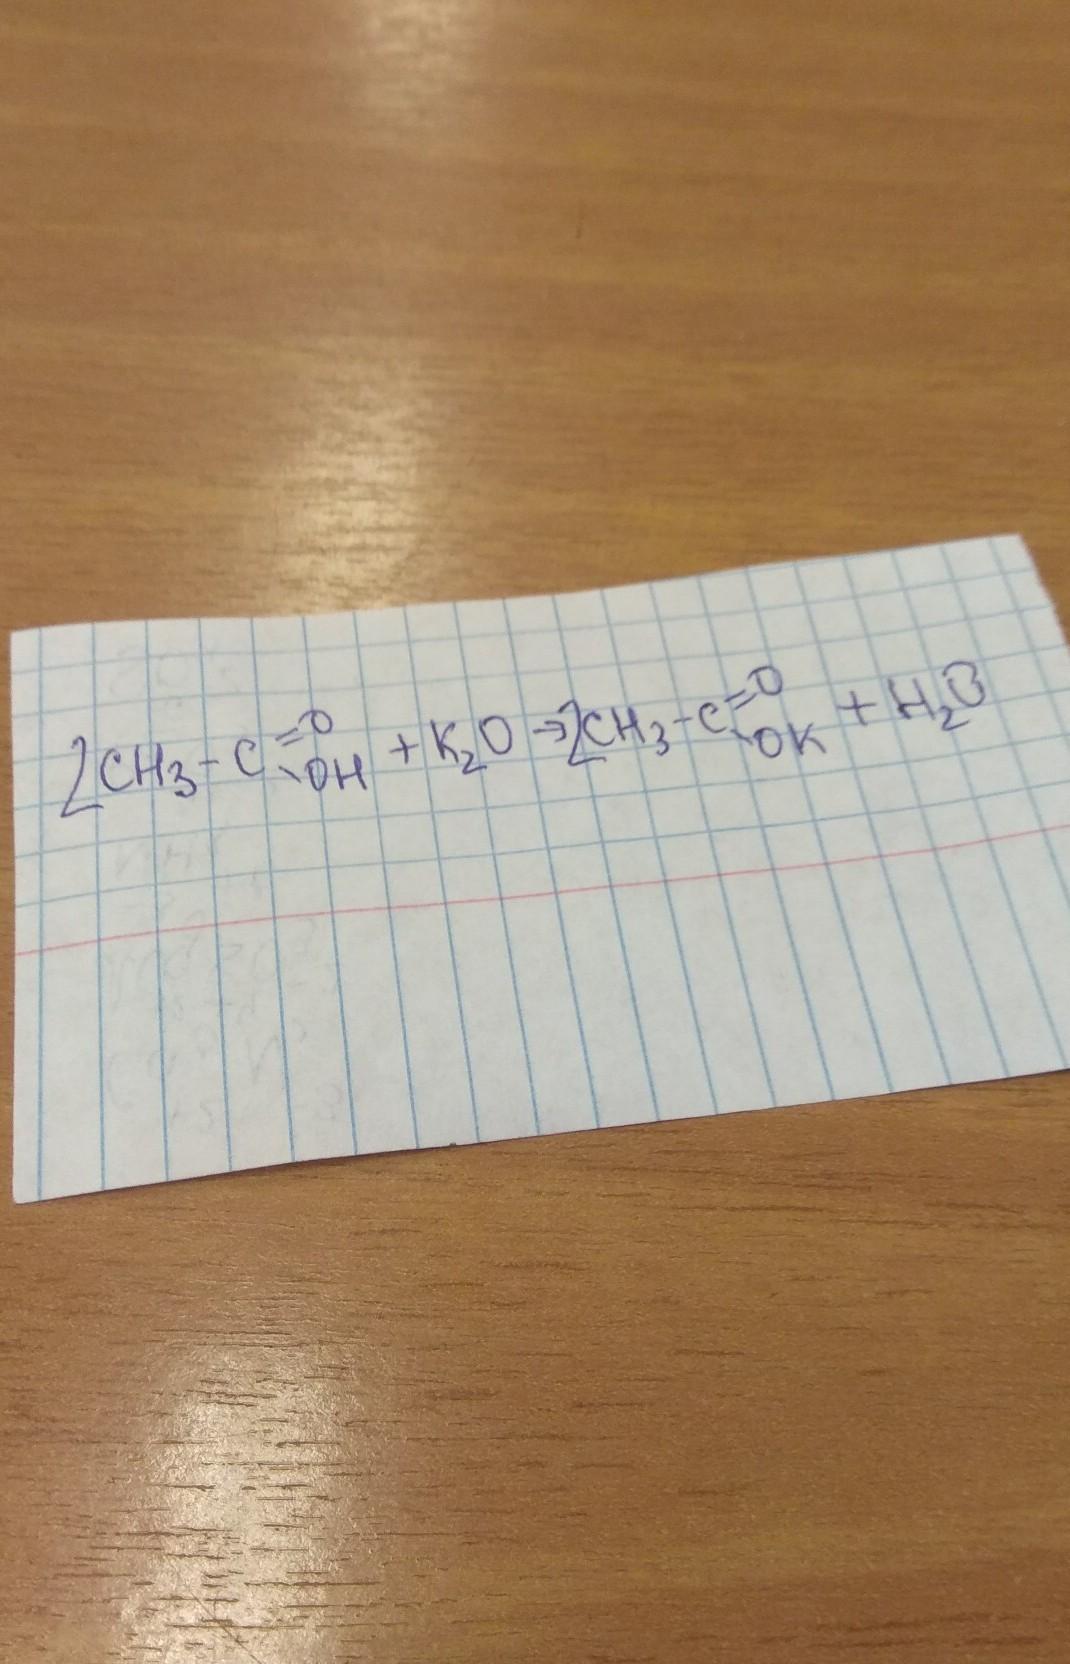 2CH₃-C=O-OH + K₂O → 2CH₃-C=O-OK + H₂O